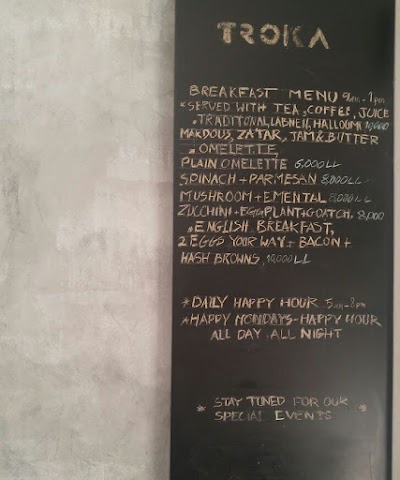 TROKA
BREAKFAST MENU 9am-1pm
*SERVED WITH TEA, COFFEE, JUICE
.TRADITONAL, LABNEH, HALLOUMI 10,000
MAKDOUS, ZA'TAR, JAM & BUTTER
. OMELETTE,
PLAIN OMELETTE 6,000LL
SPINACH + PARMESAN 8,000LL
MUSHROOM + EMENTAL 8,000LL
ZUCCHINI + EGGPLANT + GOATCH. 8,000
. ENGLISH BREAKFAST,
2 EGGS YOUR WAY + BACON +
HASH BROWNS, 10,000LL
*DAILY HAPPY HOUR 5pm-8pm
*HAPPY MONDAYS-HAPPY HOUR
ALL DAY ALL NIGHT
* STAY TUNED FOR OUR *
SPECIAL EVENTS